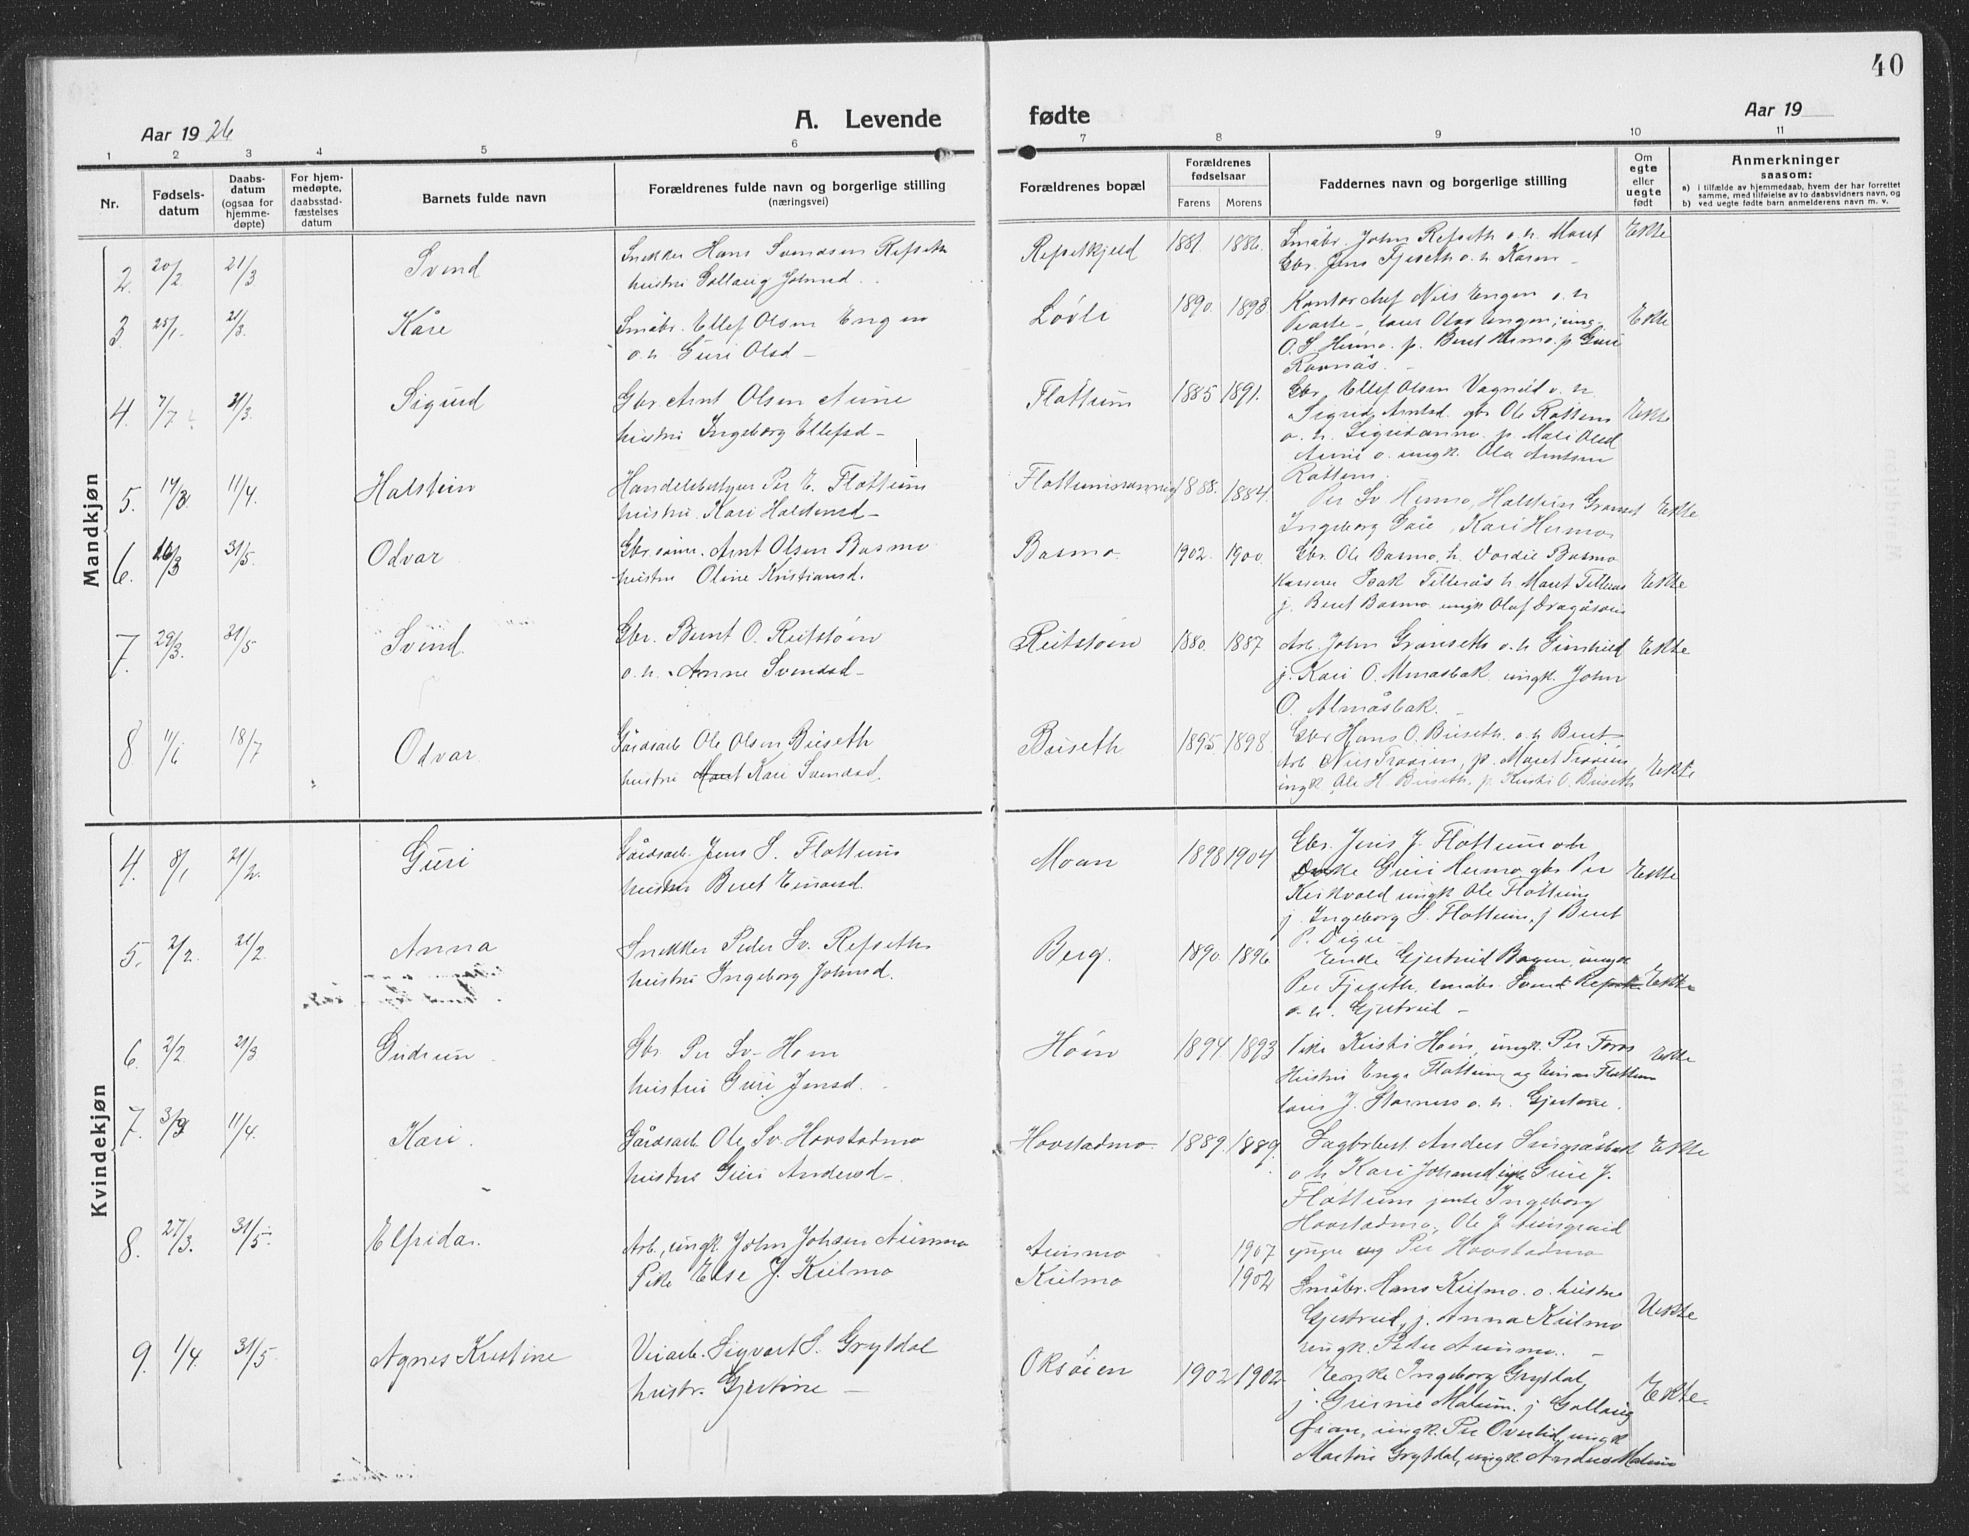 40
Aar 1926
A. Levende
fødte
Aar 19
1 2 3 4 5 6 7 8 9 10 11
Nr.
Fødsels-
datum
Daabs-
datum
(ogsaa for
hjemme-
døpte)
For hjem-
medøpte,
daabsstad-
fæstelses
datum
Barnets fulde navn
Forældrenes fulde navn og borgerlige stilling
(næringsvei)
Forældrenes bopæl
Forældrenes
fødselsaar
Farens Morens
Faddernes navn og borgerlige stilling
Om
egte
eller
uegte
født
Anmerkninger
saasom:
a) i tilfælde av hjemmedaab, hvem der har forrettet
samme, med tilføielse av to daabsvidners navn, og
b) ved uegte fødte barn anmelderens navn m. v.
Mandkjøn
2. 20/2 21/3 Svend
Snekker Hans Svendsen Refseth
hustru Sollaug Johnsd.
Refsetkjeld 1881. 1886.
Smaabr. John Refseth o. h. Maret
Gbr. Jens Fjeseth o. h. Karen
Ekte
3. 25/1. 21/3. Kåre
Småbr. Ellef Olsen Engen
o. h. Guri Olsd
Løvli 1890. 1898.
Kontorchef Nils Engen o. h.
Olav Engen, ung.
O. S. Hermo. p. Beret Hermo. p Guri
Ravnås.
Ekte
4. 7/7 21/3. Sigurd
Gbr. Arnt Olsen Aune
hustru Ingeborg Ellefsd
Flottum 1885 1891.
Gbr. Ellef Olsen Vagnild o. h.
Sigrid Arntsd. gbr Ole Rottem
o. h. p. Mali Olsd
Aune o. ungk. Ola Arntsen
Rottem.
Ekte
5. 14/3. 11/4. Halstein
Handelsbestyrer Per E. Flottum
hustru Kari Halstensd
1888. 1884.
Per Sv Hermo, Halstein Granset
Ingeborg Gåre, Kari Hermo
Ekte
6. 16/3 31/5. Odvar
Gbr. sønn. Arnt Olsen Basmo
hustru Oline Kristiansd.
Basmo. 1902. 1900.
Gbr. Ole Basmo, h. Dordie Basmo
Kasserer Isak Tillerås h. Maret Tillerås
j. Beret Basmo ungk Olaf Dragåsen
Ekte
7. 29/3. 31/5 Svend.
Gbr. Bernt O. Reitstøen
o. h. Anne Svendsd
Reitstøen 1880. 1887
Arb. John Granseth o. h Gunhild
j. Kari O. Almåsbak ungk. John
O. Almåsbak.
Ekte
8 11/6 18/7 Odvar
Gårdsarb Ole Olsen Buseth
hustru Maret Kari Svendsd.
Buseth 1895. 1898.
Gbr Hans O. Buseth o. h Beret
Arb Nils Trøøien, p. Maret Trøøien
ungk. Ole H. Buseth. p. Kristi O. Buseth
Ekte
Kvindekjøn
4. 8/1 21/2. Guri
Gårdsarb. Jens S. Flottum
hustru Beret Einarsd.
Moan 1898 1904
Gbr. Jens J. Flottum o h
Enke Guri Hermo gbr Per
Kirkvold ungk Ole Flottum
j. Ingeborg S. Flottum, j Beret
P. Digre
Ekte
5. 2/2. 21/2. Anna
Snekker Peder Sv. Refseth
hustru Ingeborg Johnsd.
Berg. 1890. 1896
Enke Gjertrud Bogen, ungk
Per Fjeseth, småbr. Svend Refseth
o. h. Gjertrud
Ekte
6. 2/2 21/3 Gudrun
Gbr Per Sv. Hoen
hustru Guri Jensd.
Hoen 1894. 1893
Pike Kristi Hoen, ungk. Per Foros
Hustru Enga Flottum og Einar Flottum
Ekte
7. 3/3 11/4. Kari.
Gårdsarb Ole Sv. Hovstadmo
hustru Guri Andersd
Hovstadmo. 1889. 1889.
Anders Singsåsbak
o. h Kari Guri J.
Flottum jente Ingeborg
Hovstadmo, Ole J.
yngre og Per Hovstadmo
Ekte
8. 27/3. 31/5. Elfrida.
Arb, ungk John Johsen Aunmo
Pike Else J. Kulmo
Aunmo
Kulmo
1907
1902
Småbr. Hans Kulmo. o. hustru
Gjertrud, j. Anna Kulmo
ungk. Peder Aunmo.
Uekte
9. 1/4. 31/5 Agnes Kristine
Veiarb. Sigvart S. Grytdal
hustr. Gjertine
Oksøien 1902 1902
Enke Ingeborg Grytdal,
j. Malum. j Sollaug
Øian, ungk. Per ungk
Martin Grytdal, ungk Anders Malum
Ekte.